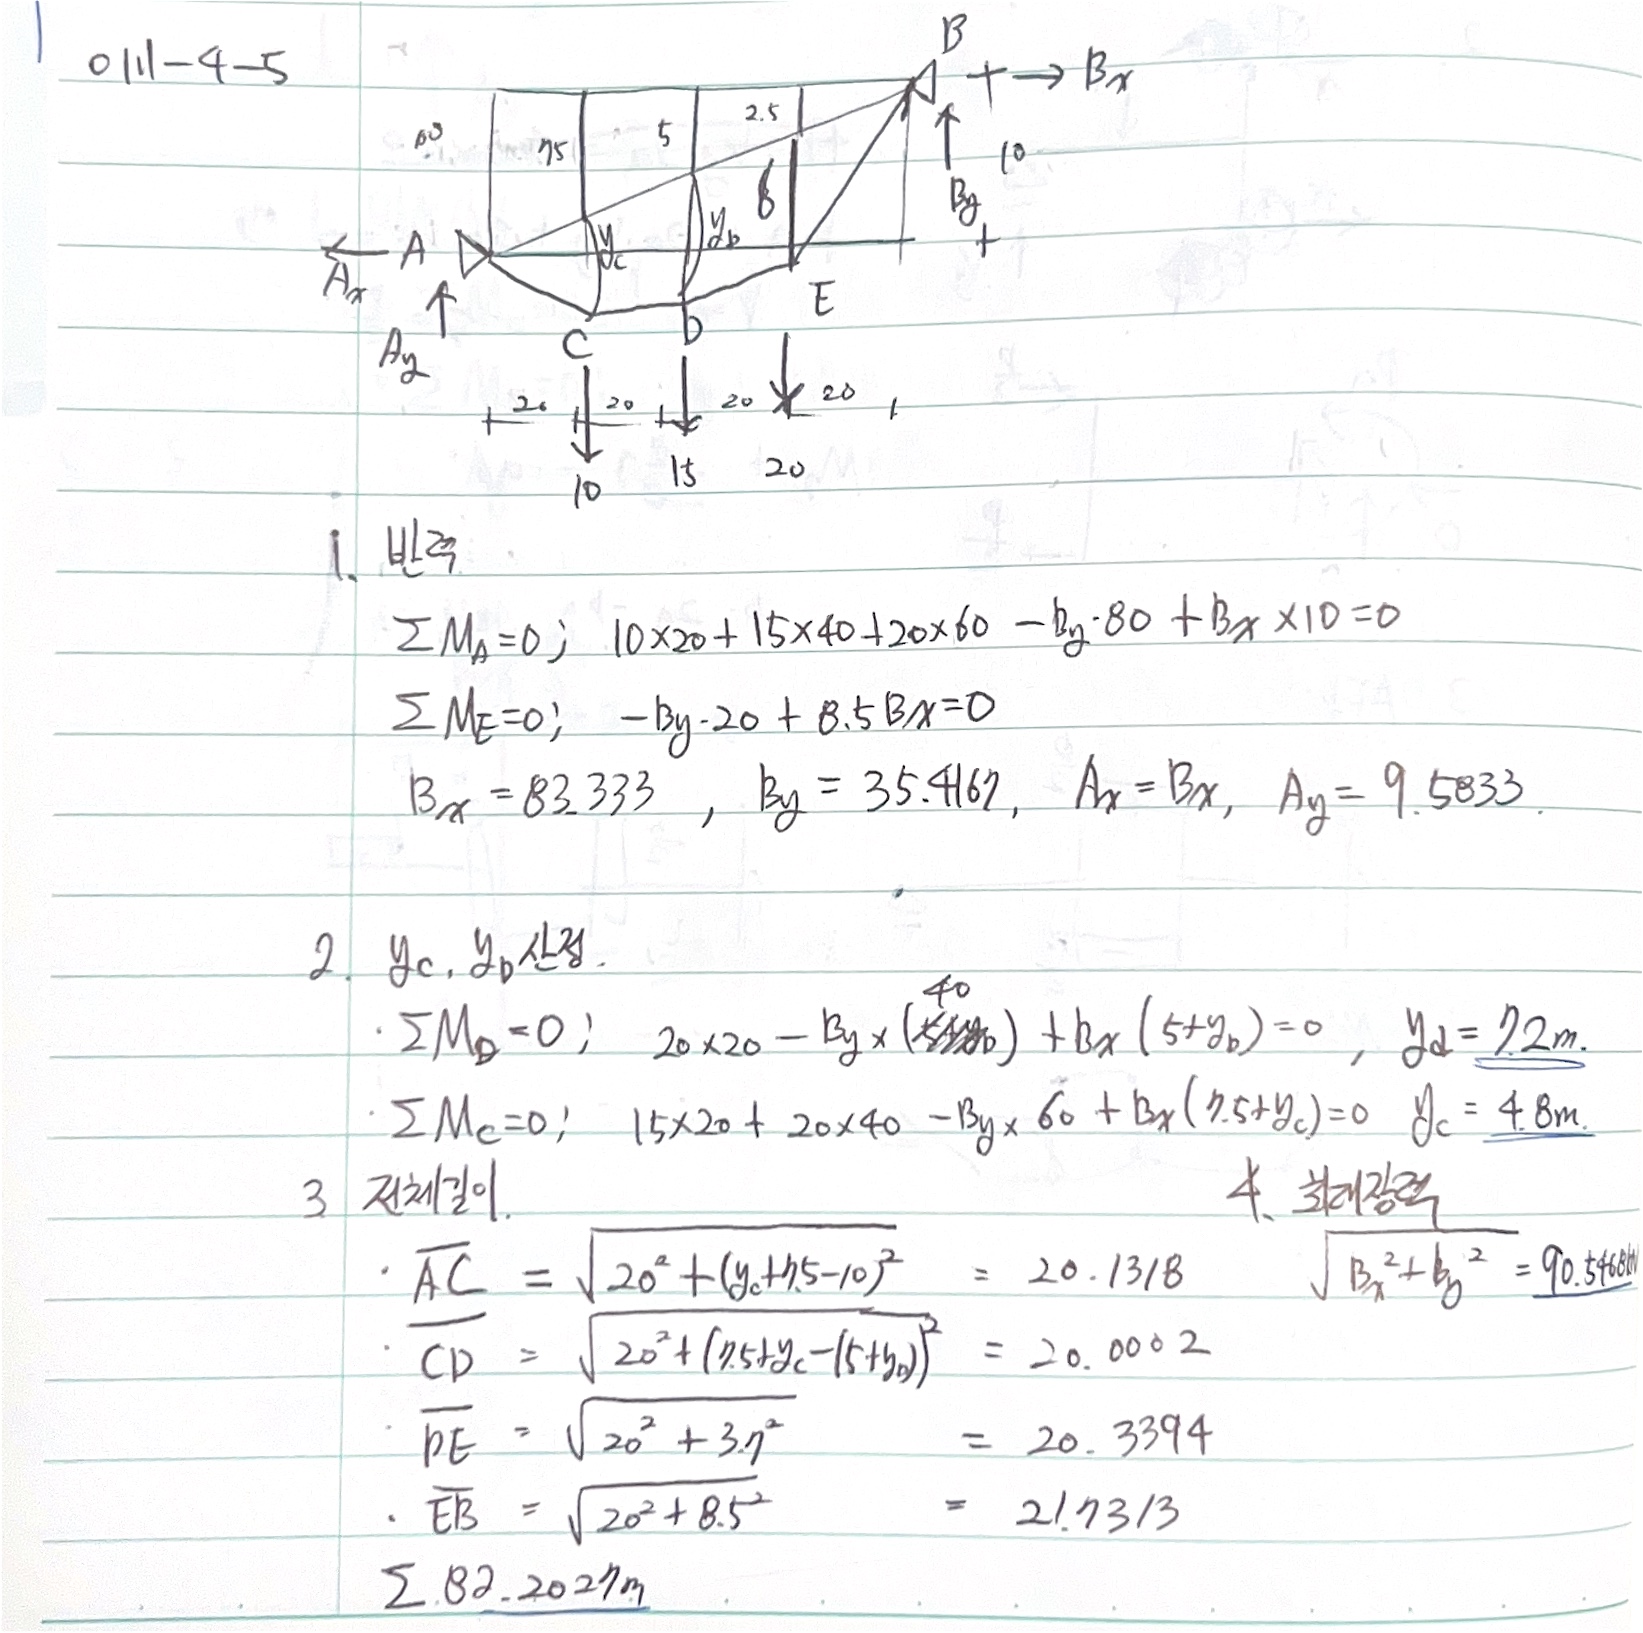 0111-4-5
B
→ Bx
10 7.5 5 2.5
6 By 10
Ax A yc yD
Ay C D E
20 20 20 20
10 15 20
1. 반력
ΣMA=0; 10×20+15×40+20×60 -By·80 +Bx×10=0
ΣME=0; -By·20 + 8.5Bx=0
Bx=83.333, By=35.4167, Ax=Bx, Ay=9.5833.
2. yc, yD 산정.
·ΣMD=0; 20×20-By×(40)+Bx(5+yD)=0, yd=7.2m.
·ΣMC=0; 15×20+20×40-By×60+Bx(7.5+yc)=0 yc=4.8m.
3 전체길이.
· AC = √20²+(yc+7.5-10)² = 20.1318
· CD = √20²+(7.5+yc-(5+yD))² = 20.0002
· DE = √20²+3.7² = 20.3394
· EB = √20²+8.5² = 21.7313
Σ 82.2027m
4. 최대장력
√Bx²+By² = 90.5468kN